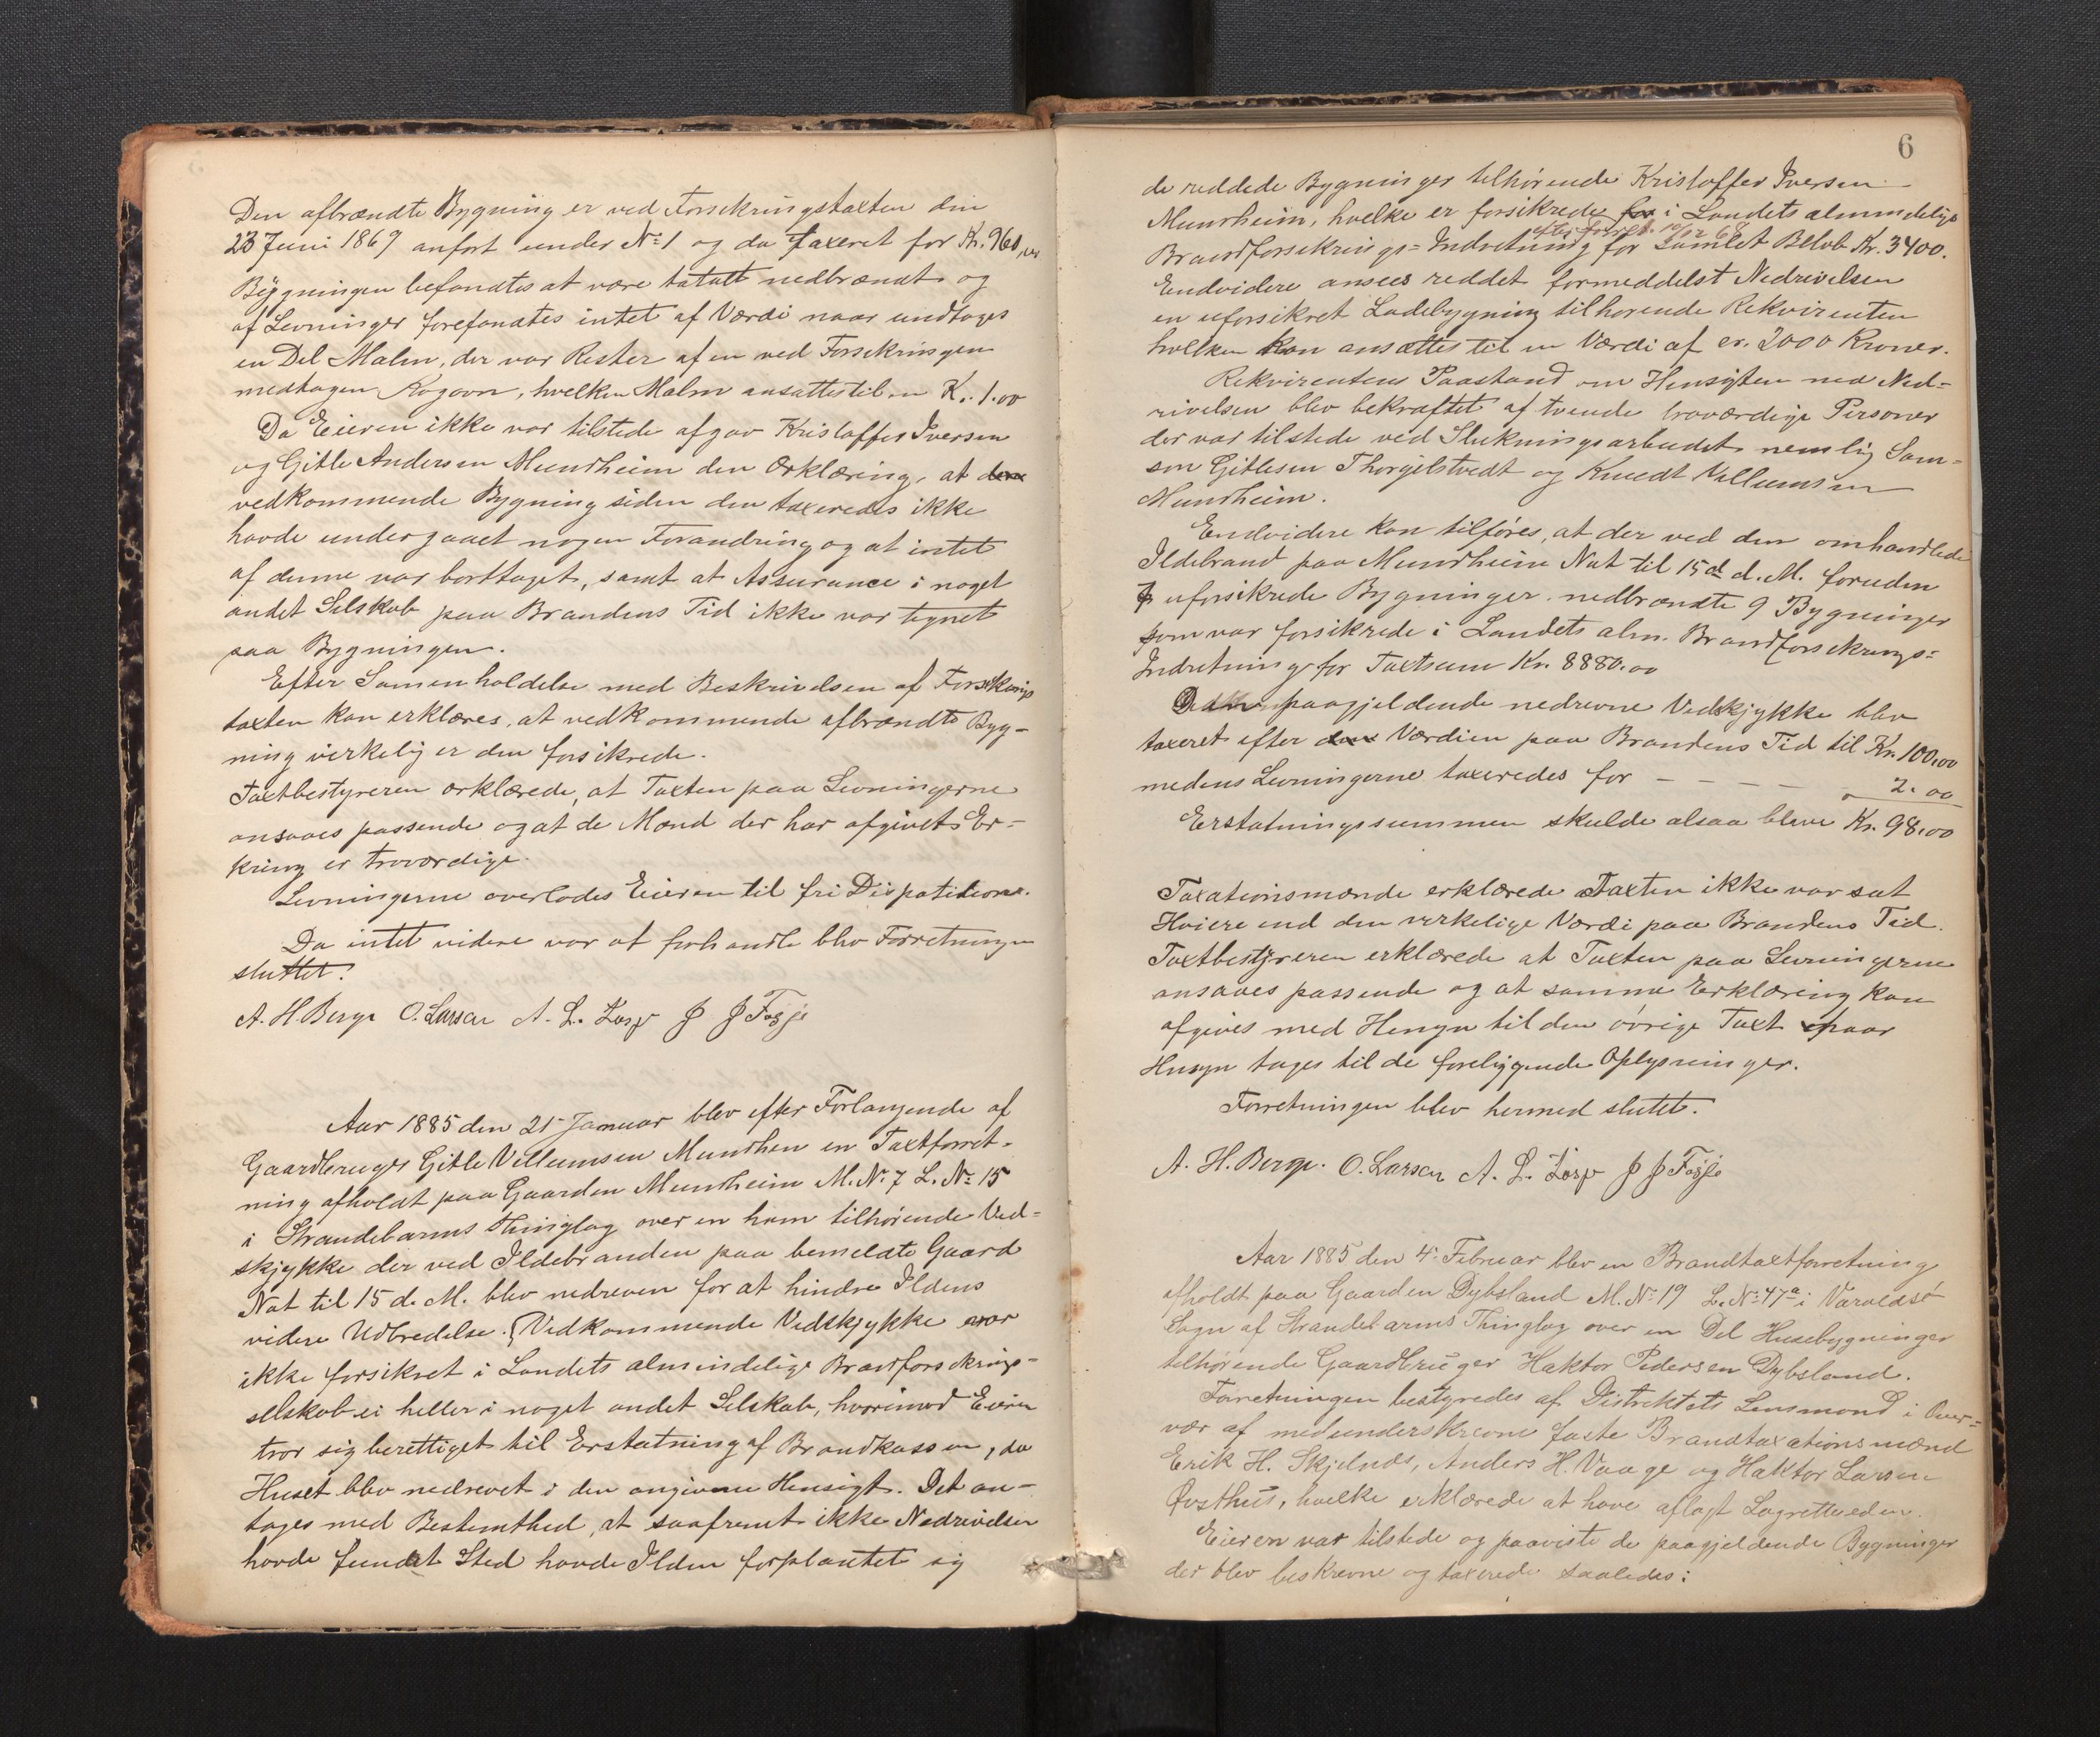 Den afbrændte Bygning er ved Forsikringstaxten den
23 Juni 1869 anført under No 1 og da taxeret for Kr. 960,00
Bygningen befandtes at være totalt nedbrændt og
af Levninger forefandtes intet af Værdi naar undtages
en Del Malm, der var Rester af en ved Forsikringen
medtagen Kogovn, hvelken Malm ansattes til en K. 1.00
Da Eieren ikke var tilstede afgav Kristoffer Iversen
og Gitle Andersen Mundheim den Erklæring, at
vedkommende Bygning siden den taxeredes ikke
havde undergaaet nogen Forandring og at intet
af denne var borttaget, samt at Assurance i noget
andet Selskab paa Brandens Tid ikke var tegnet
paa Bygningen.
Efter Samenholdelse med Beskrivelsen af Forsikrings
taxten kan erklæres, at vedkommende afbrændte Byg-
ning virkelig er den forsikrede.
Taxtbestyreren erklærede, at Taxten paa Levningerne
ansaaes passende og at de Mænd der har afgivet Er-
kring er troværdige.
Levningerne overlodes Eieren til fri Dispotition.
Da intet videre var at forhandle blev Forretningen
sluttet.
A. H. Berge O. Larsen A. L.
Aar 1885 den 21 Januar blev efter Forlangende af
Gaardbruger Gitle Villumsen Mundhen en Taxtforret-
ning afholdt paa Gaarden Mundheim M. No 7 L. No 15
i Strandebarms Thinglag over en ham tilhørende Ved-
skjykke der ved Ildebranden paa bemeldte Gaard
Nat til 15 d. M. blev nedreven for at hindre Ildens
videre Udbredelse. Vedkommende Vedskjykke var
ikke forsikret i Landets almindelige Brandforsikrings-
selskab ei heller i noget andet Selskab, hvorimod Eieren
tror sig berettiget til Erstatning af Brandkassen, da
Huset blev nedrevet i den angivne Hensigt. Det an-
tages med Bestemthed, at saafremt ikke Nedrivelsen
havde fundet Sted havde Ilden forplantet sig
6
de reddede Bygninger tilhørende Kristoffer Iversen
Mundheim, hvelke er forsikrede for i Landets almindelige
efter forret. 10/12 68
Brandforsikrings-Indretning for Samlet Beløb Kr. 3400.
Endvidere ansees reddet formeddelst Nedrivelsen
en uforsikret Ladebygning tilhørende Rekvirenten
hvelken kan ansættes til en Værdi af cr. 2000 Kroner.
Rekvirentens Paastand om Hensigten med Ned-
rivelsen blev bekræftet af tvende troværdige Personer
der var tilstede ved Slukningsarbeidet nemlig Sam-
son Gitlesen Thorgilstvedt og Knudt Villumsen
Mundheim.
Endvidere kan tilføres, at der ved den omhandlede
Ildebrand paa Mundheim Nat til 15de d. M. foruden
7 uforsikrede Bygninger nedbrændte 9 Bygninger
som var forsikrede i Landets alm. Brandforsikrings-
Indretninge for Taxtsum Kr. 8880.00
Den paagjeldende nedrevne Vedskjykke blev
taxeret efter Værdien paa Brandens Tid til Kr. 100,00
medens Levningerne taxeredes for - - - - " 2.00
Erstatningssummen skulde alsaa blive Kr. 98.00
Taxationsmændene erklærede Taxten ikke var sat
Høiere end den virkelige Værdi paa Brandens Tid.
Taxtbestyreren erklærede at Taxten paa Levningerne
ansaaes passende og at samme Erklæring kan
afgives med Hensyn til den øvrige Taxt naar
Hensyn tages til de foreliggende Oplysninger.
Forretningen blev hermed slutet.
A. H. Berge. O. Larsen A. L.
Aar 1885 den 4 Februar blev en Brandtaxtforretning
afholdt paa Gaarden Dybsland M. No 19 L. No 47a i Varaldsø
Sogn af Strandebarms Thinglag over en Del Husebygninger
tilhørende Gaardbruger Haktor Pedersen Dybsland.
Forretningen bestyredes af Distriktets Lensmand i Over-
vær af medunderskrevne faste Brandtaxationsmænd
Erik H. Skjelnæs, Anders H. Vaage og Haktor Larsen
Østhus, hvelke erklærede at have aflagt Lagretteeden.
Eieren var tilstede og paaviste de paagjeldende Bygninger
der blev beskrevne og taxerede saaledes: